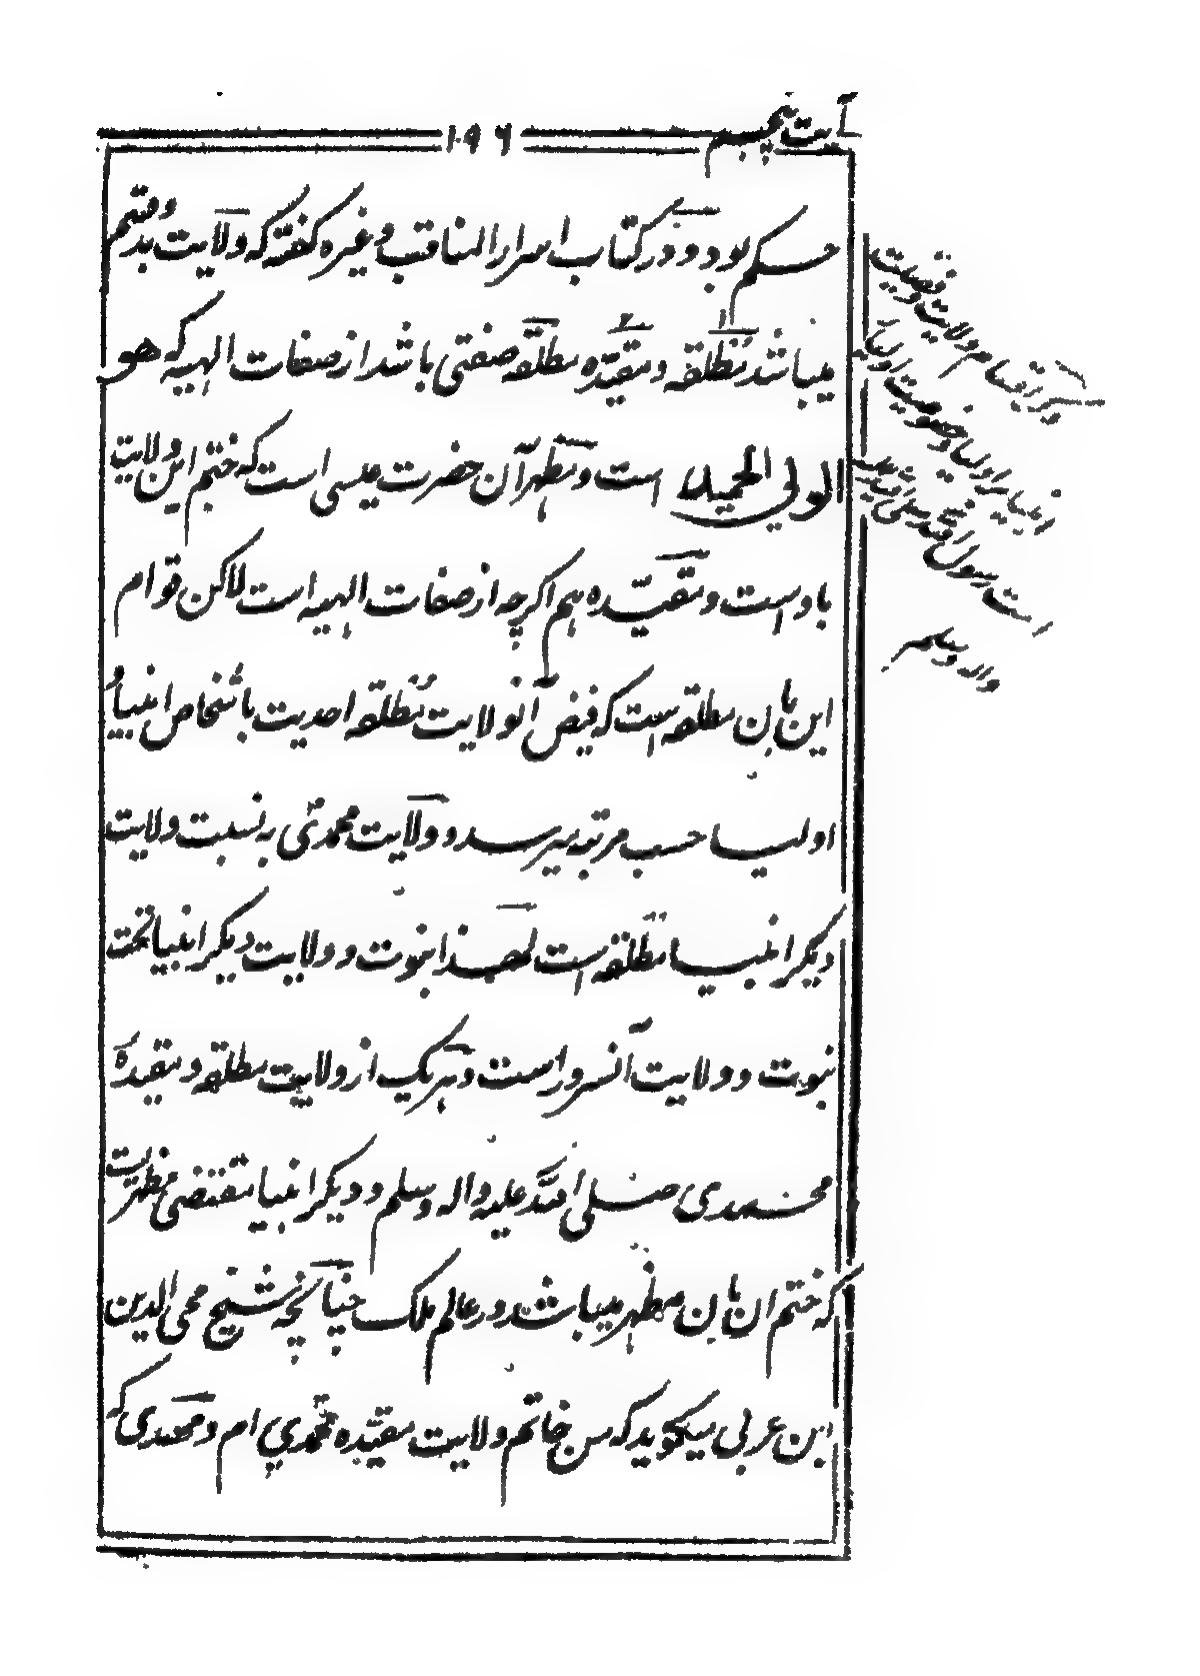 آیت پنجم
۱۰۹۶
حکم بود و در کتاب اسرار المناقب و غیره گفته که ولایت بدو قسم
میباشد مطلقه و مقیّده مطلقه صفتی باشد از صفات الهیه که هو
الولي الحمید است و مظهر آن حضرت عیسی است که ختم این ولایت
باوست و مقیّده هم اگرچه از صفات الهیه است لاکن قوام
این بان مطلقه است که فیض آنولایت مطلقه احدیت باشخاص انبیا و
اولیا حسب مرتبه میرسد و ولایت محمدی به نسبت ولایت
دیگر انبیا مطلقه است لهذا نبوت و ولایت دیگر انبیا تحت
نبوت و ولایت آنسرور است و هر یک از ولایت مطلقه و مقیده
محمدی صلی الله علیه و اله و سلم و دیگر انبیا مقتضی مظهریست
که ختم ان بان مظهر میباشد در عالم ملک چنانچه شیخ محی الدین
ابن عربی میگوید که من خاتم ولایت مقیّده محمدي ام و محمدی که
ذکر اقسام ولایت و فضلیت
انبیا بر اولیا و خصوصیت اولیا
است رسول الله محمد صلی الله علیه
واله وسلم